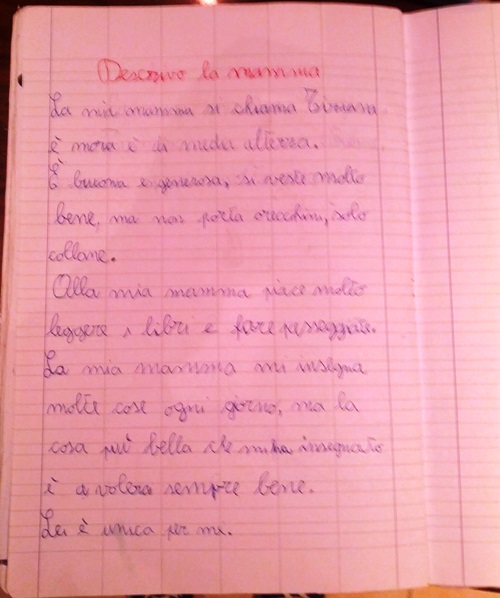 Descrivo la mamma
La mia mamma si chiama Tiziana,
è mora è di media altezza.
È buona e generosa, si veste molto
bene, ma non porta orecchini, solo
collane.
Alla mia mamma piace molto
leggere i libri e fare passeggiate.
La mia mamma mi insegna
molte cose ogni giorno, ma la
cosa più bella che mi ha insegnato
è a volersi sempre bene.
Lei è unica per me.